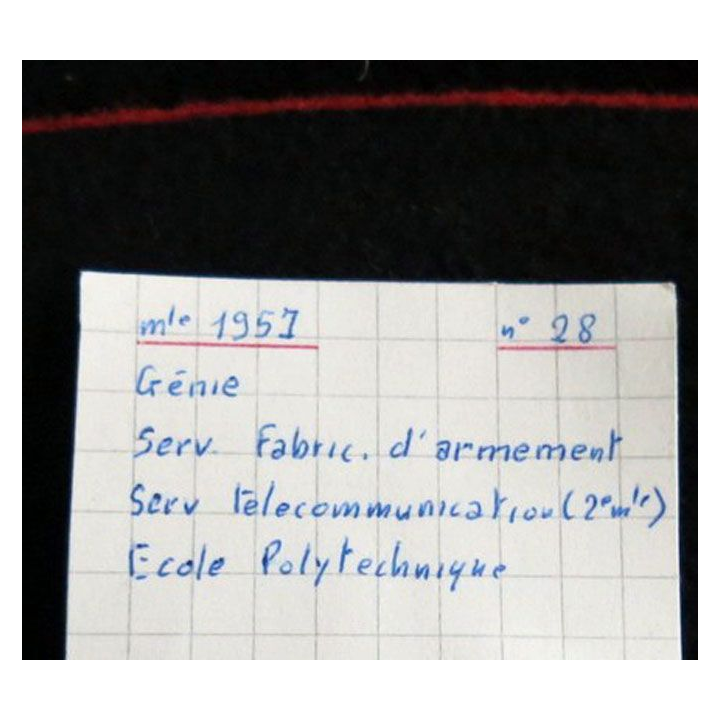 mle 1957 n° 28
Génie
Serv. Fabric. d'armement
Serv télécommunication (2e mle)
Ecole Polytechnique